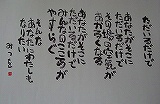 ただいるだけで
あなたがそこに
ただいるだけで
その場の空気が
あかるくなる
あなたがそこに
ただいるだけで
みんなのこころが
やすらぐ
そんな
あなたにわたしも
なりたい
みつを